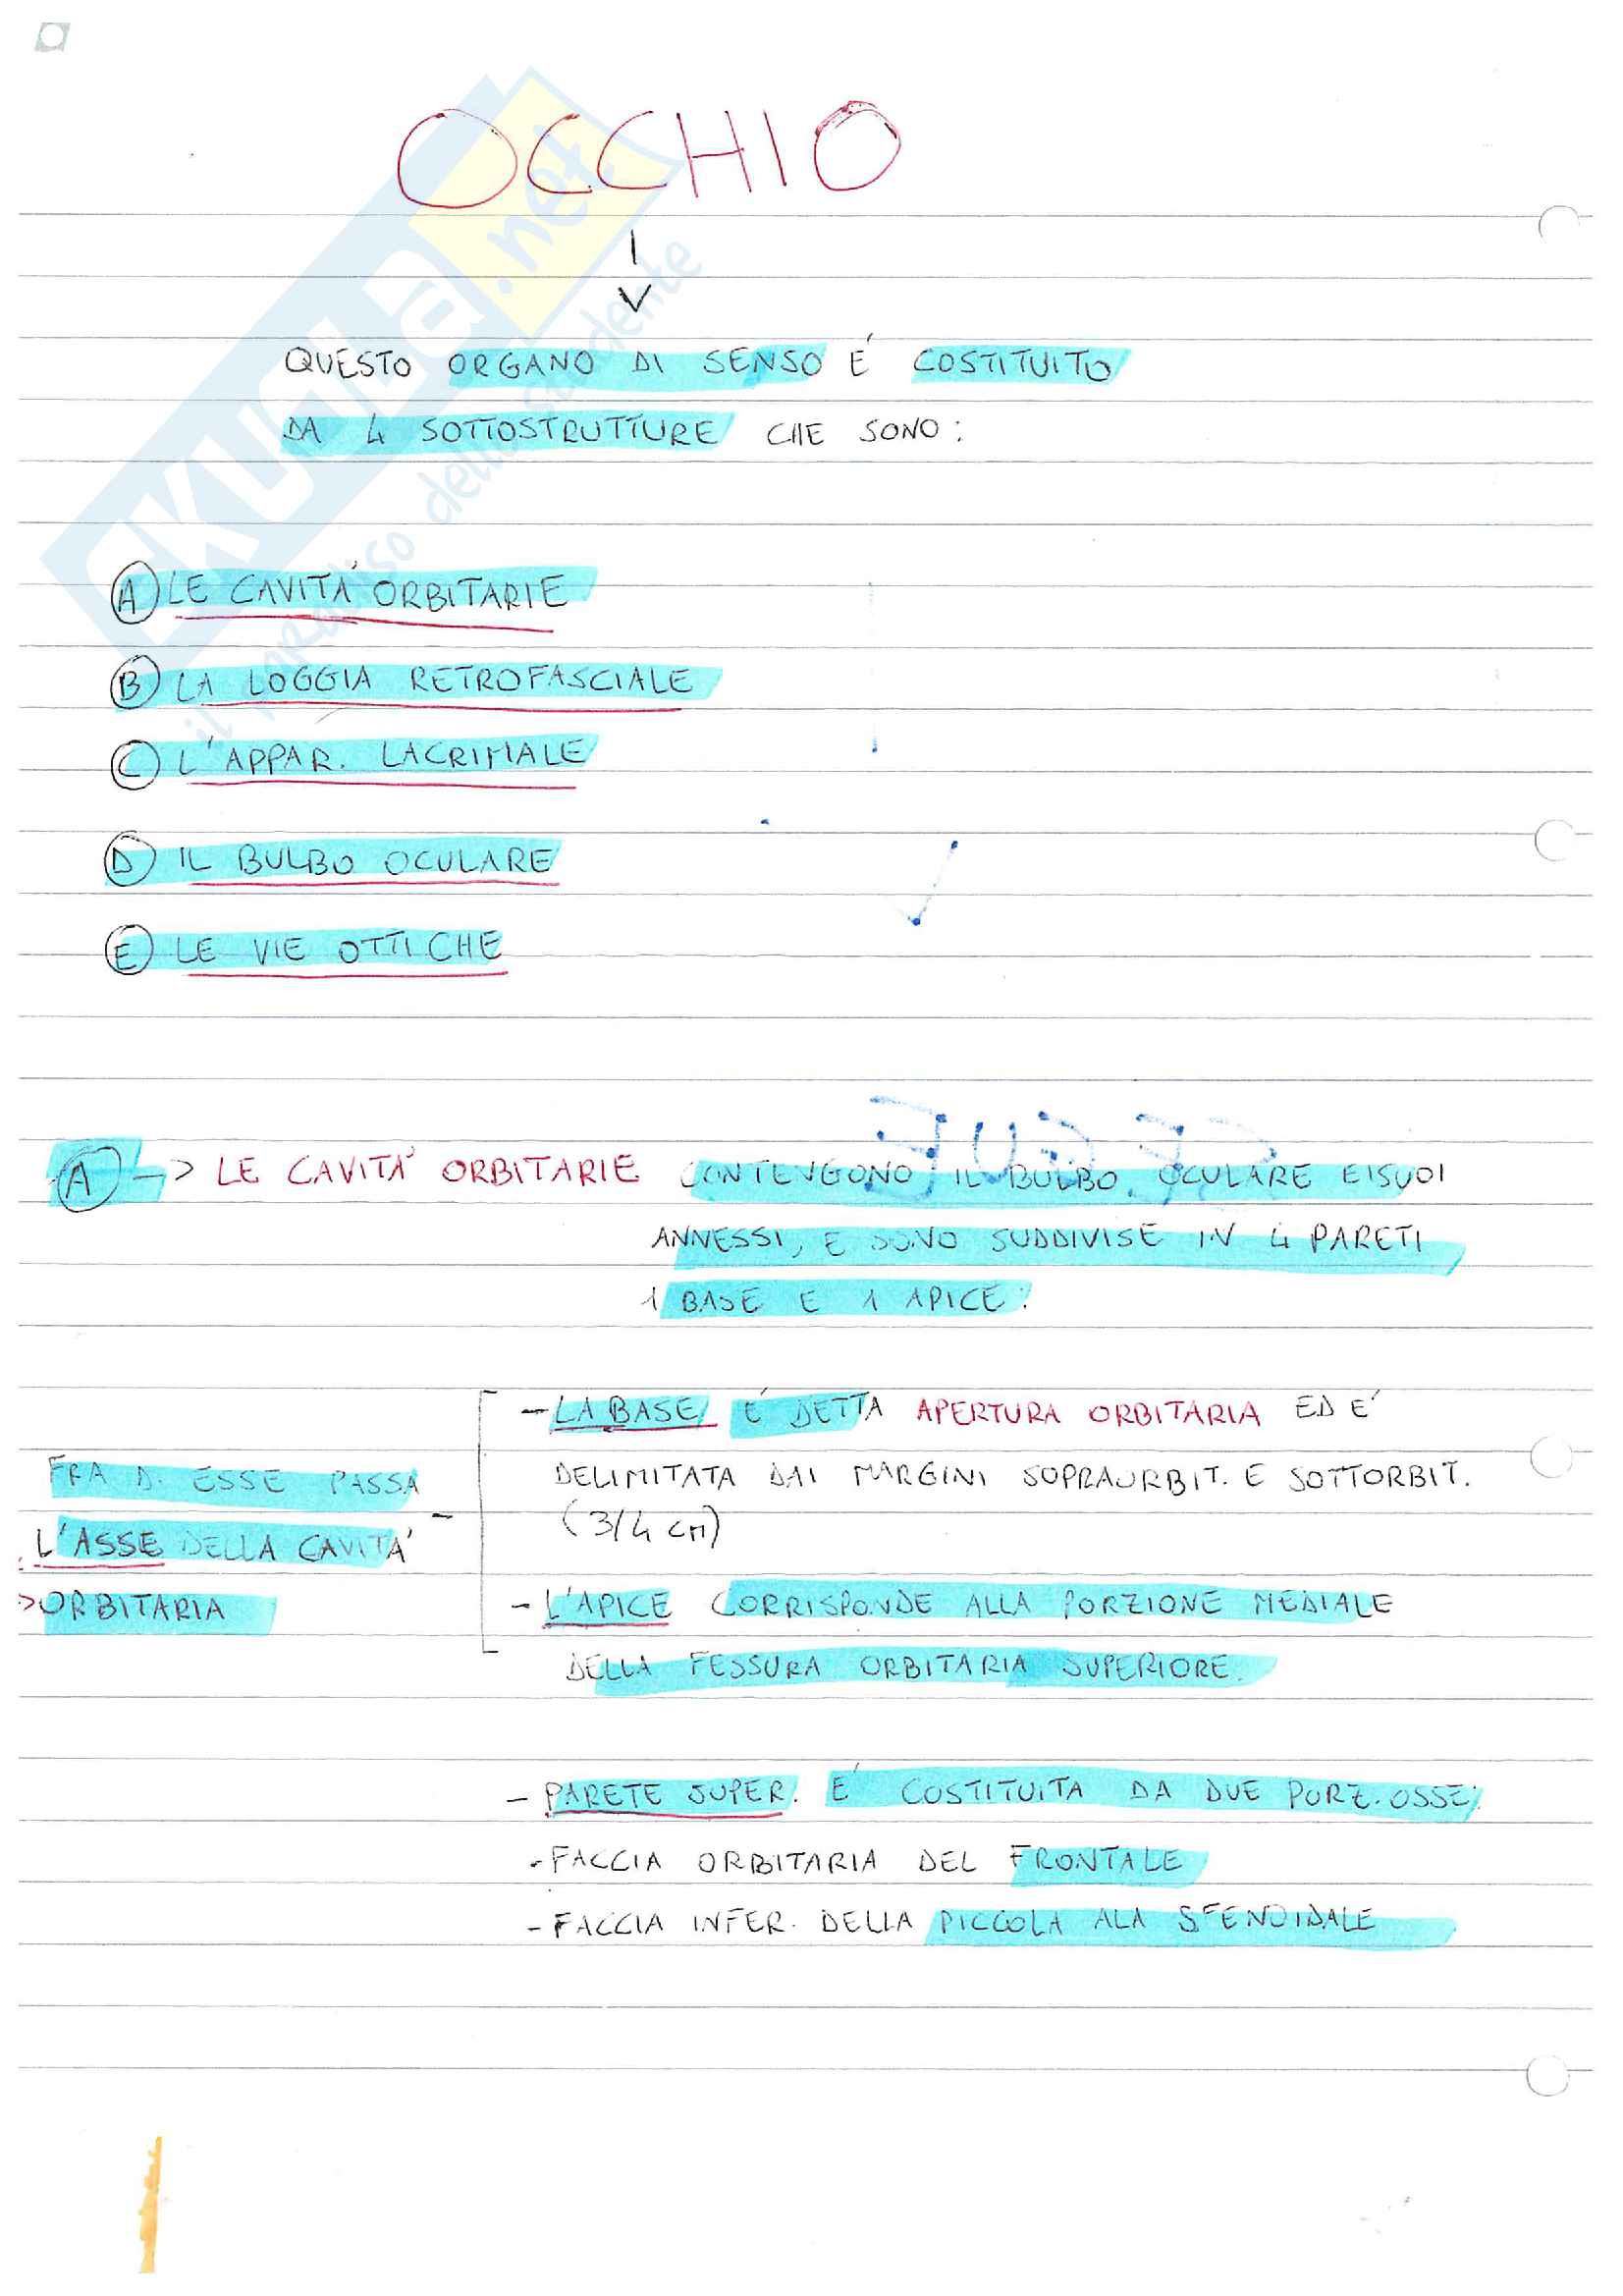 OCCHIO
QUESTO ORGANO DI SENSO E' COSTITUITO
DA 4 SOTTOSTRUTTURE CHE SONO:
A LE CAVITA' ORBITARIE
B LA LOGGIA RETROFASCIALE
C L'APPAR. LACRIMALE
D IL BULBO OCULARE
E LE VIE OTTICHE
A -> LE CAVITA' ORBITARIE CONTENGONO IL BULBO OCULARE E I SUOI
ANNESSI, E SONO SUDDIVISE IN 4 PARETI
1 BASE E 1 APICE:
- LA BASE E' DETTA APERTURA ORBITARIA ED E'
DELIMITATA DAI MARGINI SOPRAORBIT. E SOTTORBIT.
(3/4 CM)
- L'APICE CORRISPONDE ALLA PORZIONE MEDIALE
DELLA FESSURA ORBITARIA SUPERIORE.
FRA DI ESSE PASSA
L'ASSE DELLA CAVITA'
>ORBITARIA
- PARETE SUPER. E' COSTITUITA DA DUE PORZ. OSSE:
- FACCIA ORBITARIA DEL FRONTALE
- FACCIA INFER. DELLA PICCOLA ALA SFENOIDALE
SEGUE
SKUOLA.net
il paradiso dello studente